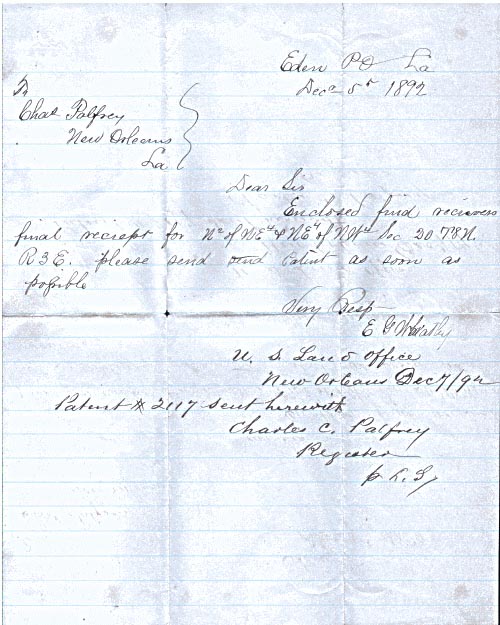 Eden PO La
Dec 5th 1892
To
Chas Palfrey
New Orleans
La
Dear Sir
Enclosed find recievers
final reciept for N2 of NE4 & NE4 of NW4 Sec 20 T8 N.
R3E. please send send Patent as soon as
possible
Very Resp
E G Wheatly
U. S Land Office
New Orleans Dec 7/92
Patent # 2117 sent herewith
Charles C. Palfrey
Register
p L. S.